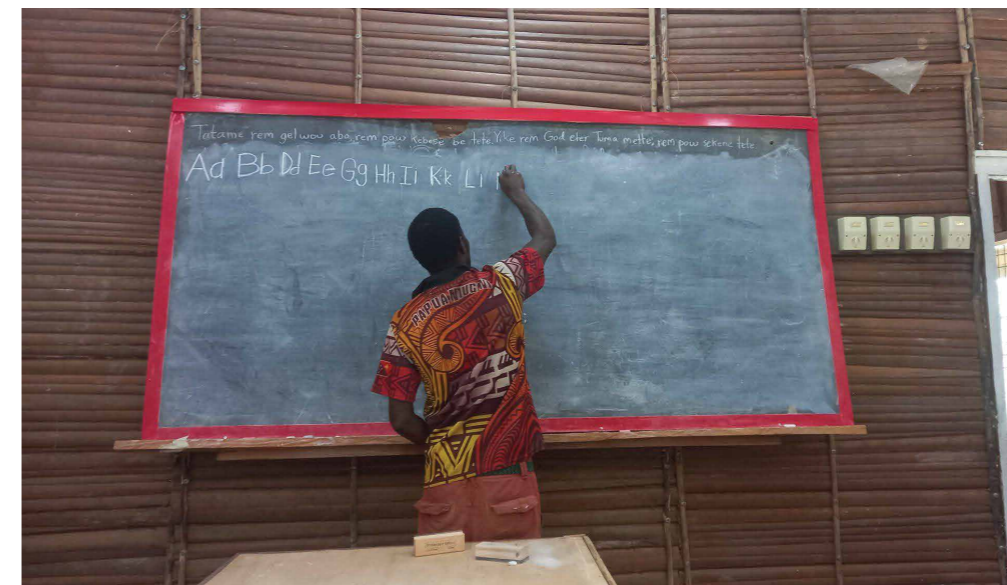 Tatame rem gelwou aba, rem pow kebese be tete. Yike rem God eter Tuma mette, rem pow sekene tete
Aa Bb Dd Ee Gg Hh Ii Kk Ll
PAPUA NIUGINI